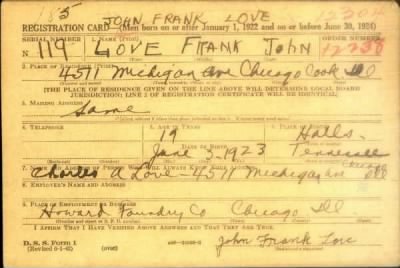 JOHN FRANK LOVE
REGISTRATION CARD—(Men born on or after January 1, 1922 and on or before June 30, 1924)
SERIAL NUMBER 1. NAME (Print) ORDER NUMBER
N 119 LOVE FRANK JOHN
2. PLACE OF RESIDENCE (Print)
4511 Michigan ave Chicago Cook Ill
[THE PLACE OF RESIDENCE GIVEN ON THE LINE ABOVE WILL DETERMINE LOCAL BOARD
JURISDICTION; LINE 2 OF REGISTRATION CERTIFICATE WILL BE IDENTICAL]
3. MAILING ADDRESS
Same
4. TELEPHONE 5. AGE IN YEARS
19 Halls
DATE OF BIRTH
June 1923 Tennessee
7. NAME AND ADDRESS OF PERSON WHO WILL ALWAYS KNOW YOUR ADDRESS
Chicago
Charles A Love - 4511 Michigan ave Ill
8. EMPLOYER'S NAME AND ADDRESS
Howard Foundry Co Chicago Ill
9. PLACE OF EMPLOYMENT OR BUSINESS
I AFFIRM THAT I HAVE VERIFIED ABOVE ANSWERS AND THAT THEY ARE TRUE.
D. S. S. Form 1
(over)
John Frank Love